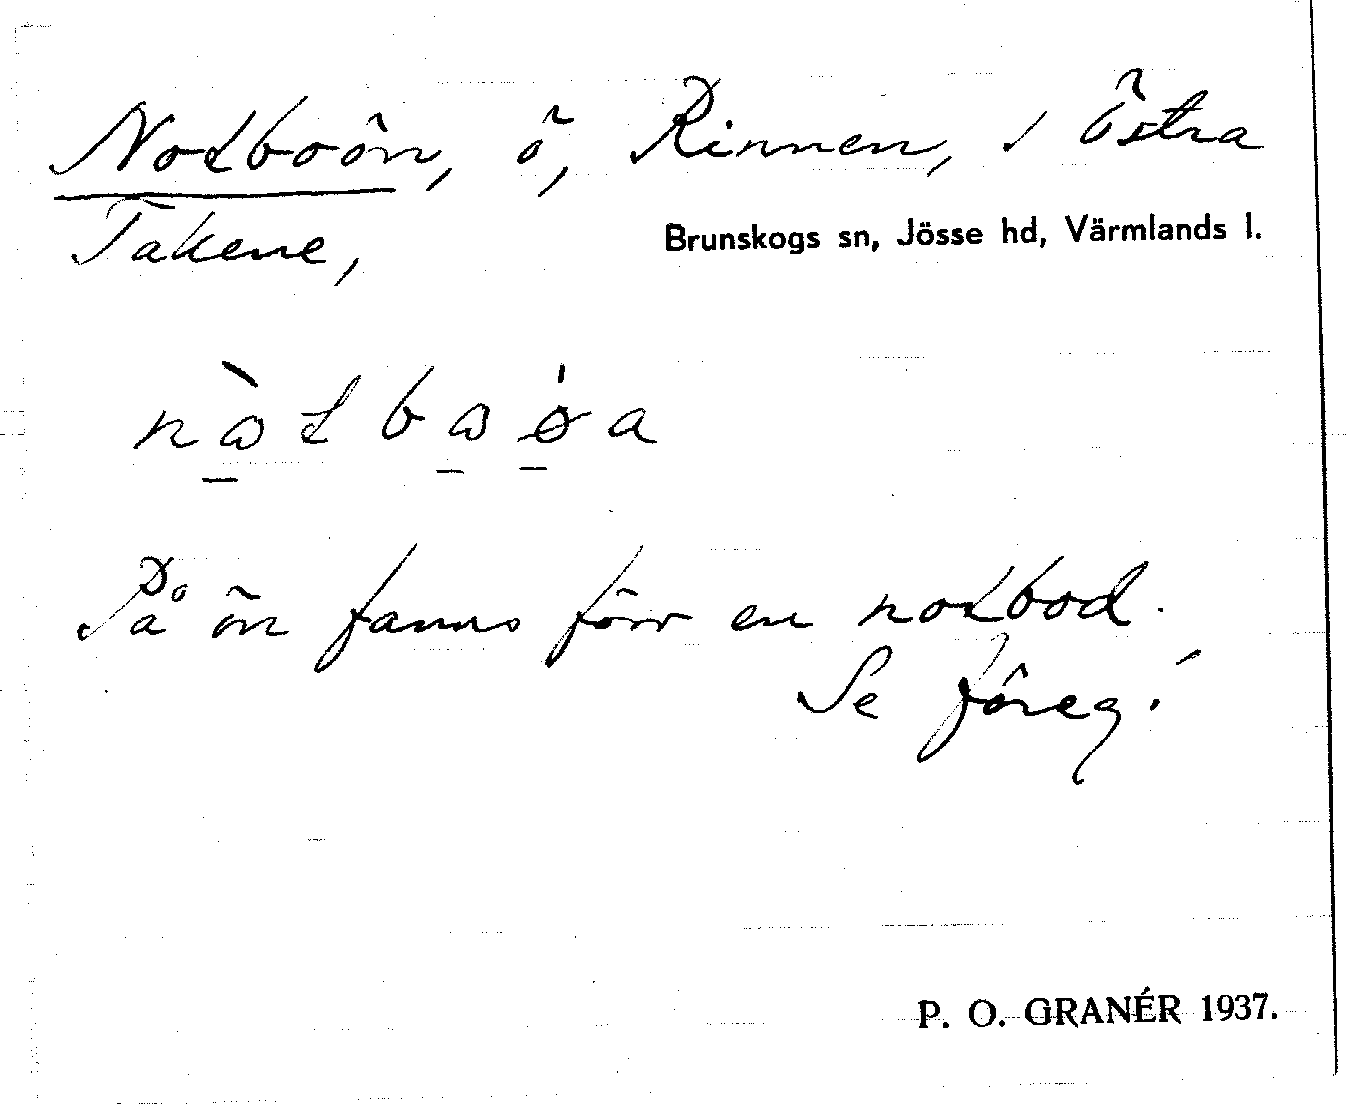 Notboön, ö, Rinnen, i Östra
Takene,
Brunskogs sn, Jösse hd, Värmlands l.
nὼtbωøa
På ön fanns förr en notbod.
Se föreg!
P. O. GRANÉR 1937.